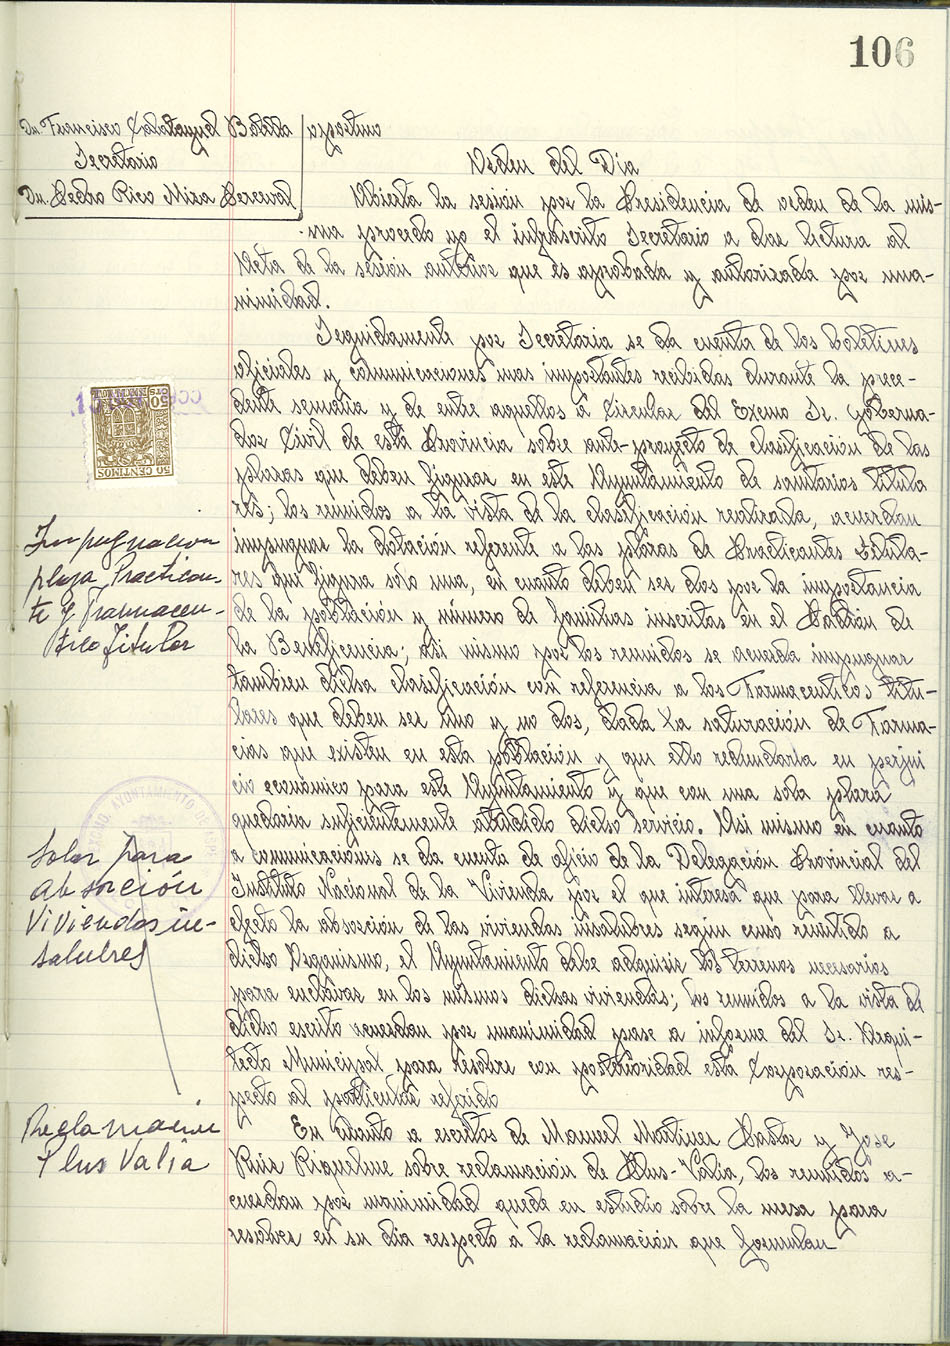 106
Dn. Francisco Calatayud Botella
Secretario
Dn. Pedro Rico Mira Perceval
Orden del Dia
Abierta la sesión por la Presidencia de orden de la mis-
ma procedo yo el infrascrito Secretario a dar lectura al
Acta de la sesión anterior que es aprobada y autorizada por una-
nimidad.
Seguidamente por Secretaria se da cuenta de los boletines
oficiales y comunicaciones mas importantes recibidas durante la prece-
dente semana y de entre aquellos a Circular del Excmo Sr. Goberna-
dor Civil de esta Provincia sobre ante-proyecto de clasificación de las
plazas que deben figurar en este Ayuntamiento de sanitarios titula
res; los reunidos a la vista de la clasificación realizada, acuerdan
impugnar la dotación referente a las plazas de Practicantes titula-
res que figura solo una, en cuanto deben ser dos por la importancia
de la población y número de familias inscritas en el Padrón de
la Beneficencia; asi mismo por los reunidos se acuerda impugnar
tambien dicha clasificación con referencia a los Farmaceuticos titu-
lares que deben ser uno y no dos, dada la saturación de Farma-
cias que existen en esta población y que ello redundaria en perjui
cio económico para este Ayuntamiento y que con una sola plaza
quedaria suficientemente atendido dicho servicio. Asi mismo en cuanto
a comunicaciones se da cuenta de oficio de la Delegación Provincial del
Instituto Nacional de la Vivienda por el que interesa que para llevar a
efecto la absorción de las viviendas insalubres segun censo remitido a
dicho Organismo, el Ayuntamiento debe adquirir los terrenos necesarios
para enclavar en los mismos dichas viviendas; los reunidos a la vista de
dicho escrito acuerdan por unanimidad pase a informe del Sr. Arqui-
tecto Municipal para resolver con posterioridad esta Corporación res-
pecto al particular referido
En cuanto a escritos de Manuel Martinez Pastor y Jose
Ruiz Riquelme sobre reclamación de Plus-Valia, los reunidos a-
cuerdan por unanimidad quede en estudio sobre la mesa para
resolver en su dia respecto a la reclamación que formulan
50 CENTIMOS
Impugnacion
plaza Practican-
te y Farmaceu-
tico Titular
EXCMO. AYUNTAMIENTO DE ASPE
Solar para
absorción
Viviendas in-
salubres
Reclamación
Plus Valia